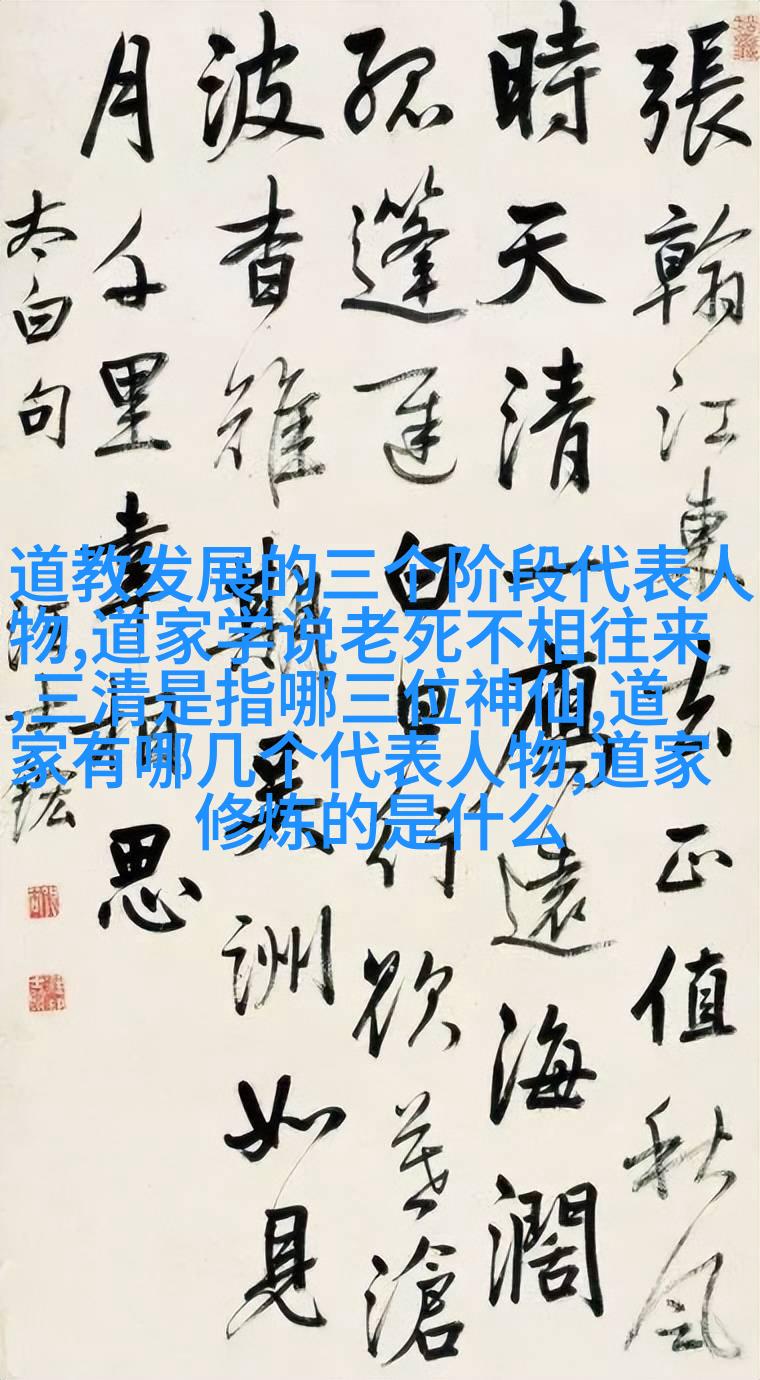 張翰江東去正值秋風
時天清一雁遠海濶
孤蓬遲白日行欲暮滄
波杳難期吴洲如見
月千里幸相思
太白句 汪士鋐
道教发展的三个阶段代表人
物,道家学说老死不相往来
,三清是指哪三位神仙,道
家有哪几个代表人物,道家
修炼的是什么